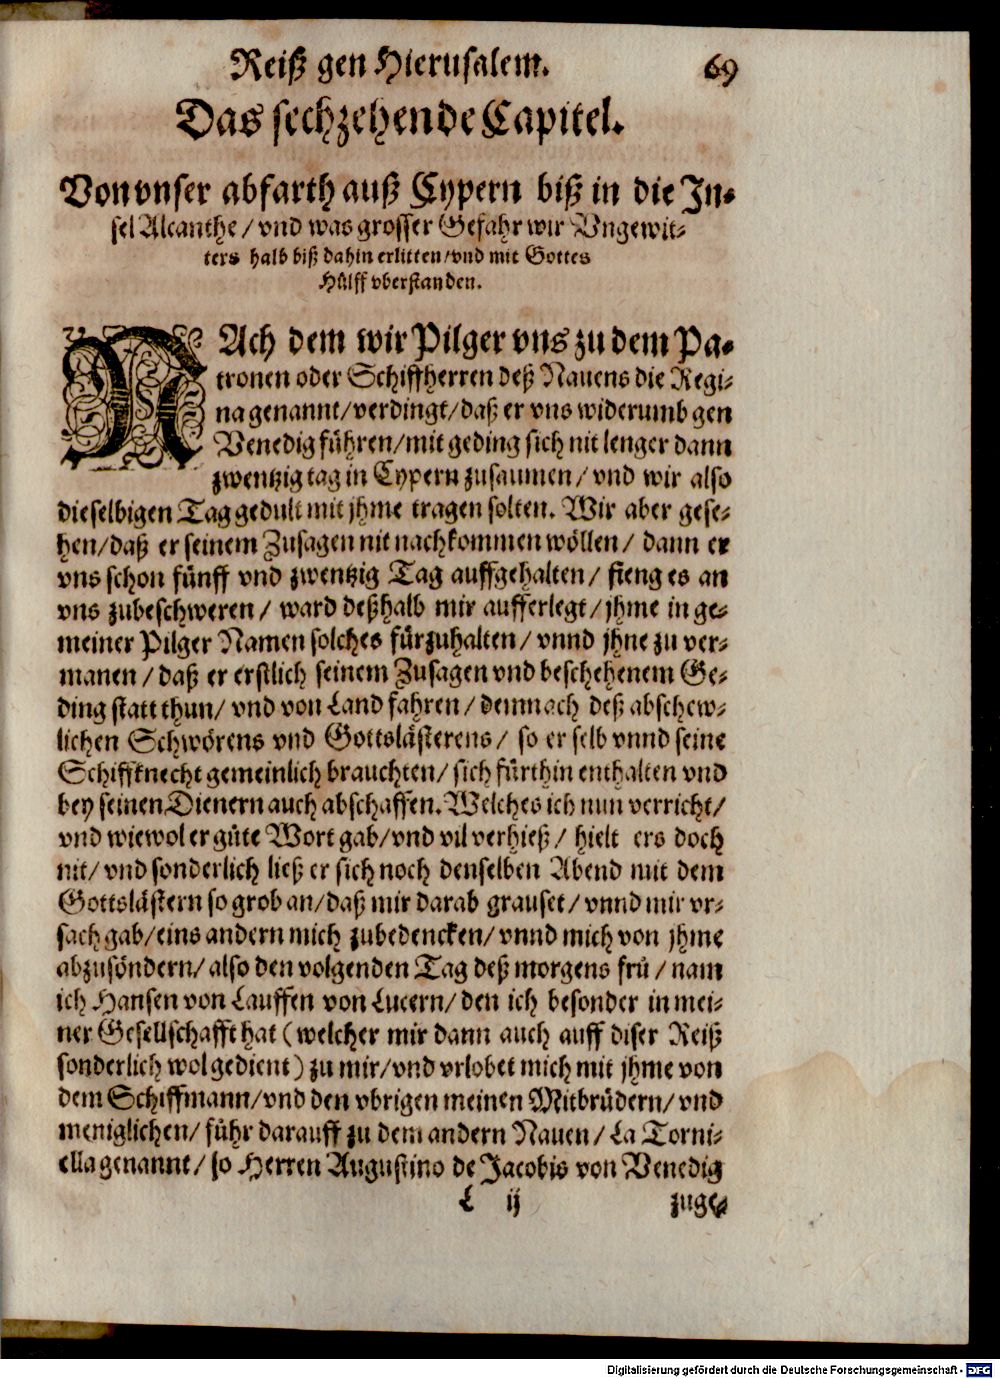 Reiß gen Hierusalem. 69
Das sechzehende Capitel.
Von vnser abfarth auß Cypern biß in die In-
sel Alcanthe / vnd was grosser Gefahr wir Vngewit-
ters halb biß dahin erlitten / vnd mit Gottes
Hülff vberstanden.
NAch dem wir Pilger vns zu dem Pa-
tronen oder Schiffherren deß Nauens die Regi-
na genannt / verdingt / daß er vns widerumb gen
Venedig führen / mit geding sich nit lenger dann
zwentzig tag in Cypern zusaumen / vnd wir also
dieselbigen Tag gedult mit jhme tragen solten. Wir aber gese-
hen / daß er seinem Zusagen nit nachkommen wöllen / dann er
vns schon fünff vnd zwentzig Tag auffgehalten / fieng es an
vns zubeschweren / ward deßhalb mir aufferlegt / jhme in ge-
meiner Pilger Namen solches fürzuhalten / vnnd jhne zu ver-
manen / daß er erstlich seinem Zusagen vnd beschehenem Ge-
ding statt thun / vnd von Land fahren / demnach deß abschew-
lichen Schwörens vnd Gottslästerens / so er selb vnnd seine
Schiffknecht gemeinlich brauchten / sich fürthin enthalten vnd
bey seinen Dienern auch abschaffen. Welches ich nun verricht /
vnd wiewol er güte Wort gab / vnd vil verhieß / hielt ers doch
nit / vnd sonderlich ließ er sich noch denselben Abend mit dem
Gottslästern so grob an / daß mir darab grauset / vnnd mir vr-
sach gab / eins andern mich zubedencken / vnnd mich von jhme
abzusöndern / also den volgenden Tag deß morgens frü / nam
ich Hansen von Lauffen von Lucern / den ich besonder in mei-
ner Gesellschafft hat ( welcher mir dann auch auff diser Reiß
sonderlich wol gedient ) zu mir / vnd vrlobet mich mit jhme von
dem Schiffmann / vnd den vbrigen meinen Mitbrüdern / vnd
meniglichen / führ darauff zu dem andern Nauen / La Torni-
ella genannt / so Herren Augustino de Jacobis von Venedig
L ij zuge-
Digitalisierung gefördert durch die Deutsche Forschungsgemeinschaft - DFG